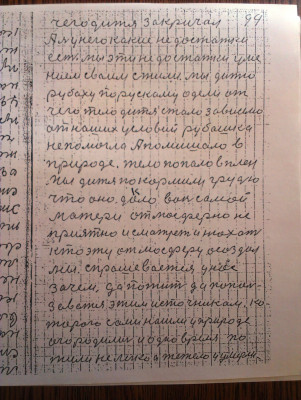 99
чего дитя закричал
А я у него какие недостатки
есть. мы эти недостатки уме
нием своим стили. мы дитю
рубаху по рускому одели от
чего тело дитя стало зависимо
от наших условий рубашка
не помогла А помишало в
природе. тело попало в плен
Мы дитя покормили грудью
что оно дало вок самой
матери отмосферно не
приятно и смотреть и нюхат
кто эту отмосферу создал
мы. спрашевается у нас
зачем, да потит да попол
зоватся этим источником, ко
торого сами нашли у природе
огородили и одно время по
жили не легко а тежело и умерли.